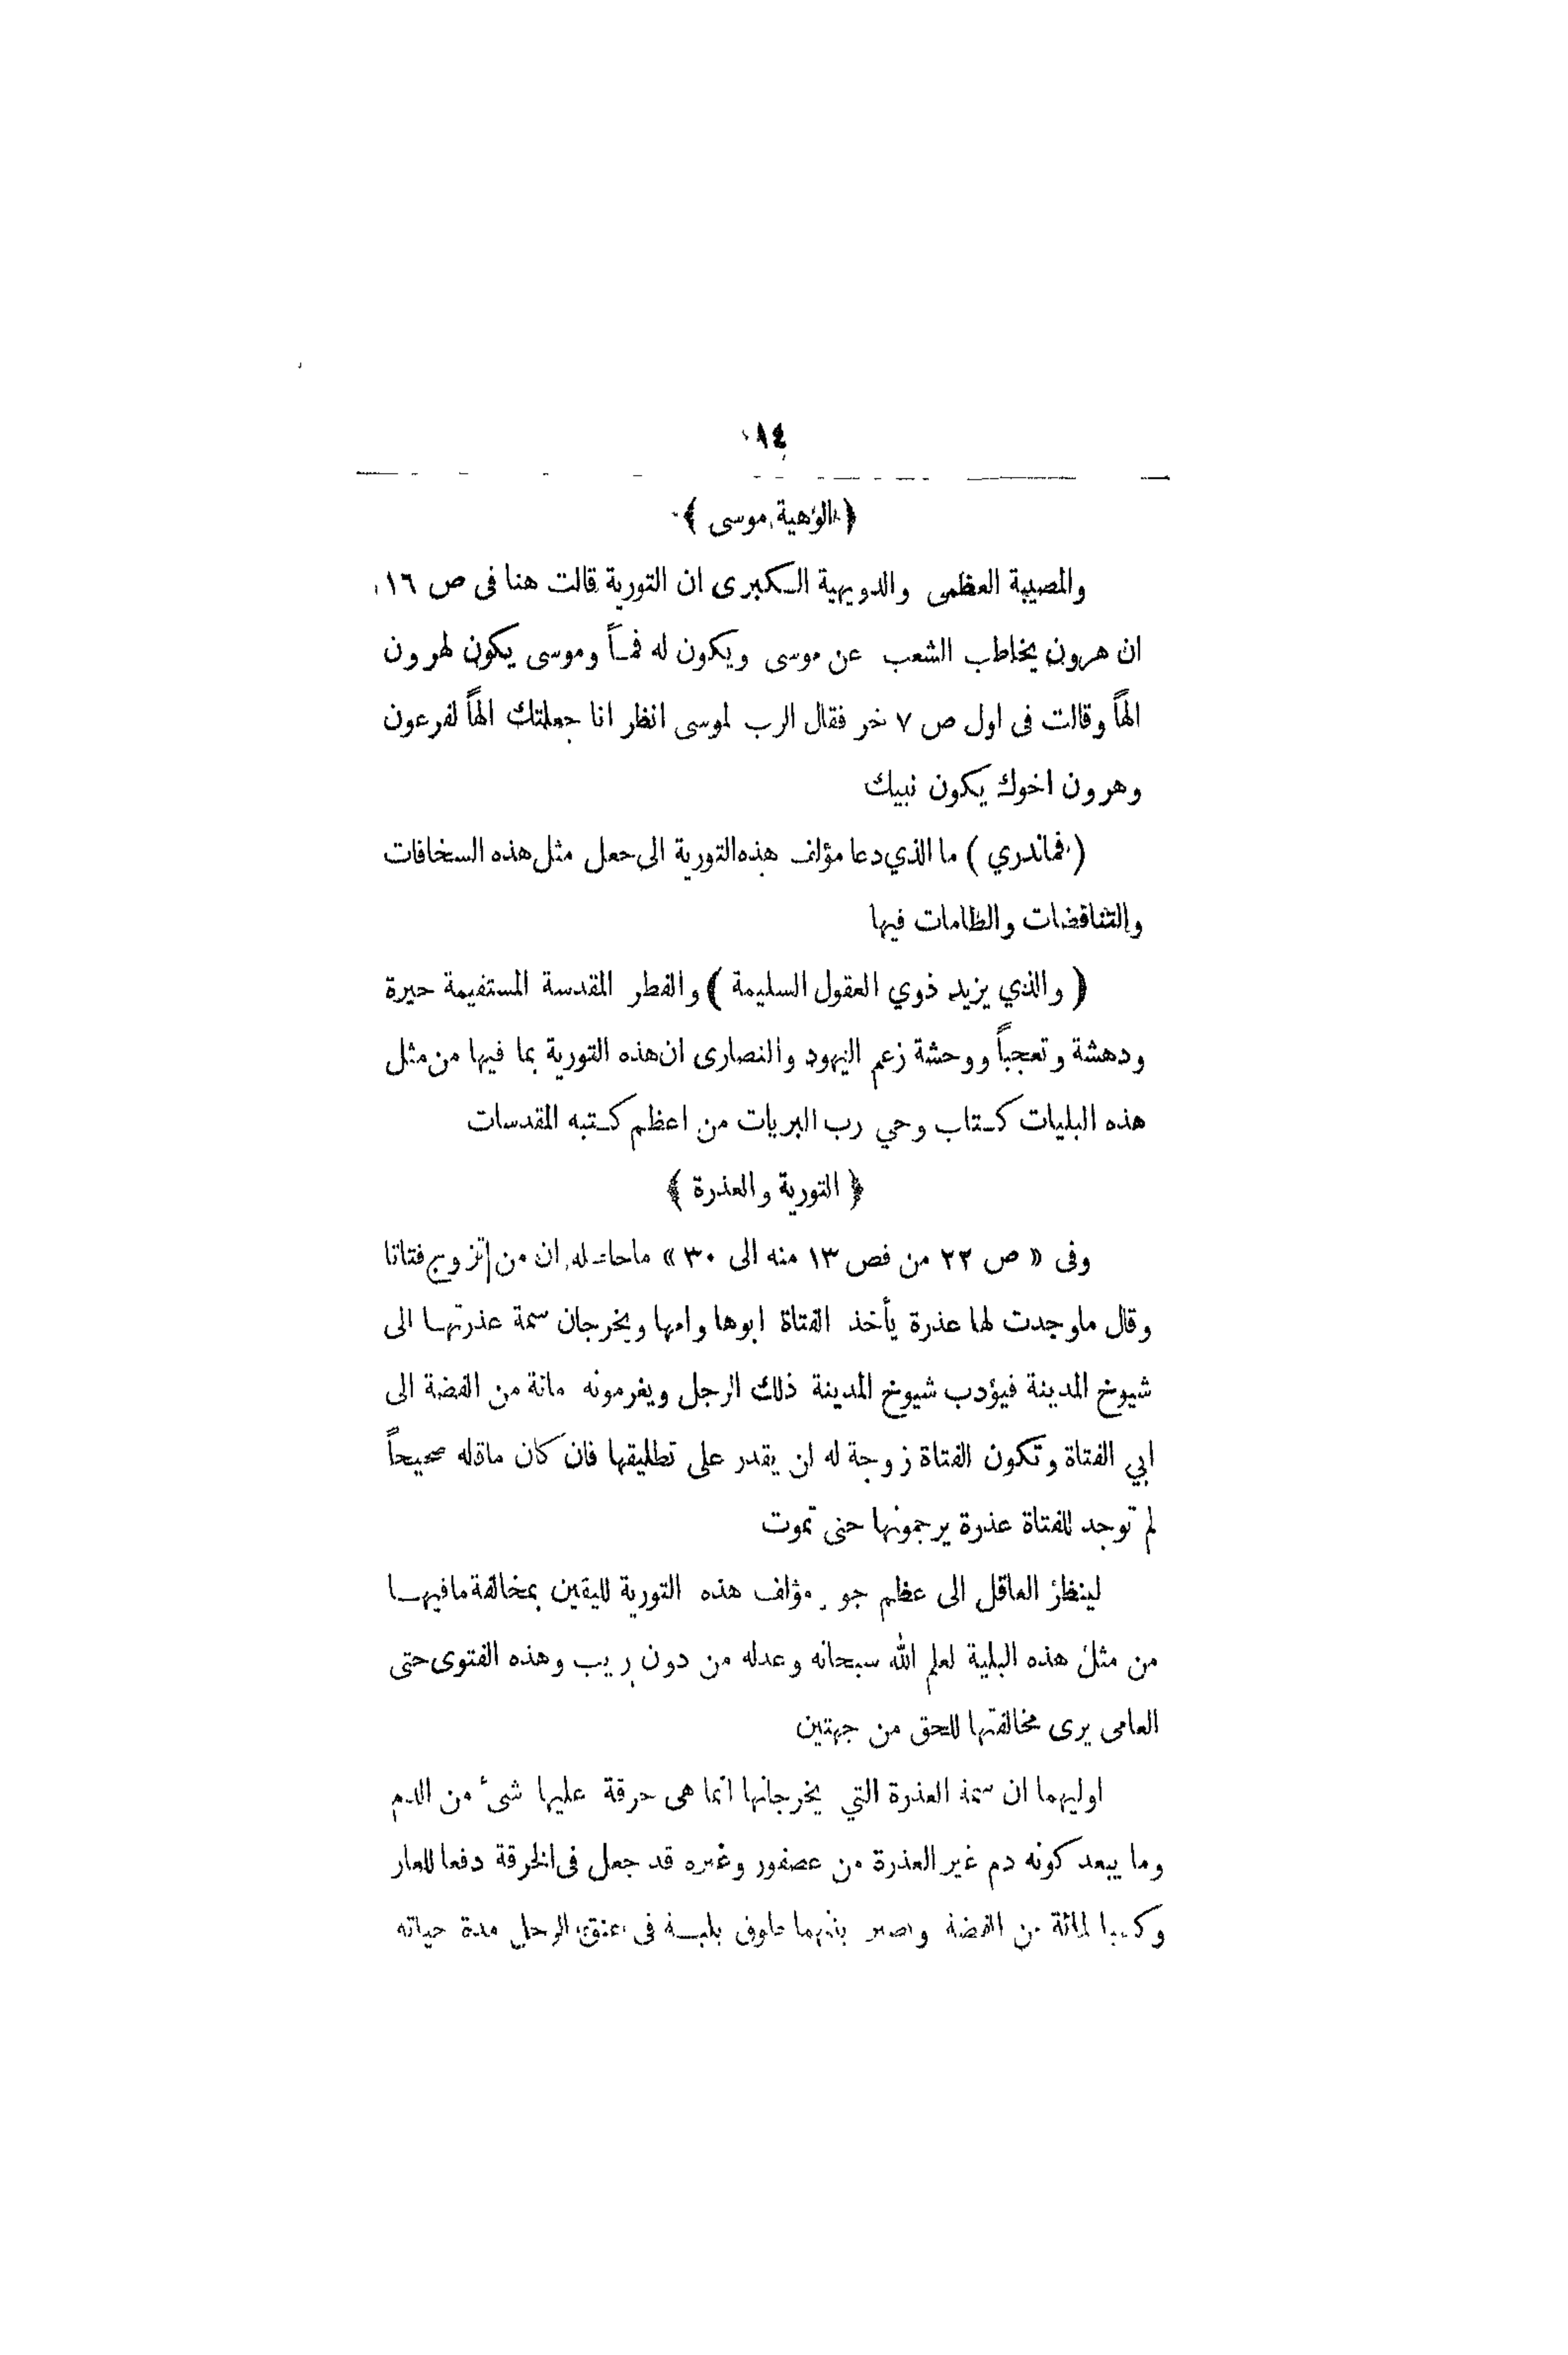 ١٤
﴿ الوهية موسى ﴾
والمصيبة العظمى والدويهية الكبرى ان التورية قالت هنا فى ص ١٦
ان هرون يخاطب الشعب عن موسى ويكون له فماً وموسى يكون لهرون
الهاً وقالت فى اول ص ٧ خر فقال الرب لموسى انظر انا جعلتك الهاً لفرعون
وهرون اخوك يكون نبيك
( فماندري ) ما الذي دعا مؤلف هذه التورية الى جعل مثل هذه السخافات
والتناقضات والظلمات فيها
( والذي يزيد ذوي العقول السليمة ) والفطر المقدسة المستقيمة حيرة
ودهشة وتعجباً ووحشة زعم اليهود والنصارى ان هذه التورية بما فيها من مثل
هذه البليات كتاب وحي رب البريات من اعظم كتبه المقدسات
﴿ التورية والعذرة ﴾
وفى « ص ٢٢ من فص ١٣ منه الى ٣٠ » ماحاصله ان من تزوج فتاتا
وقال ماوجدت لها عذرة يأخذ الفتاة ابوها وامها ويخرجان سمة عذرتها الى
شيوخ المدينة فيؤدب شيوخ المدينة ذلك الرجل ويغرمونه مائة من الفضة الى
ابي الفتاة وتكون الفتاة زوجة له لن يقدر على تطليقها فان كان ماقاله صحيحاً
لم توجد للفتاة عذرة يرجمونها حتى تموت
لينظر العاقل الى عظم مؤلف هذه التورية لليقين بمخالفة مافيها
من مثل هذه البلية لعلم الله سبحانه وعدله من دون ريب وهذه الفتوى حتى
العامى يرى مخالفتها للحق من جهتين
اوليهما ان سمة العذرة التي يخرجانها انما هى خرقة عليها شىء من الدم
وما يبعد كونه دم غير العذرة من عصفور وغيره قد جعل فى الخرقة دفعا للعار
وكسبا لمائة من الفضة بلية فى عنق الرجل مدة حياته